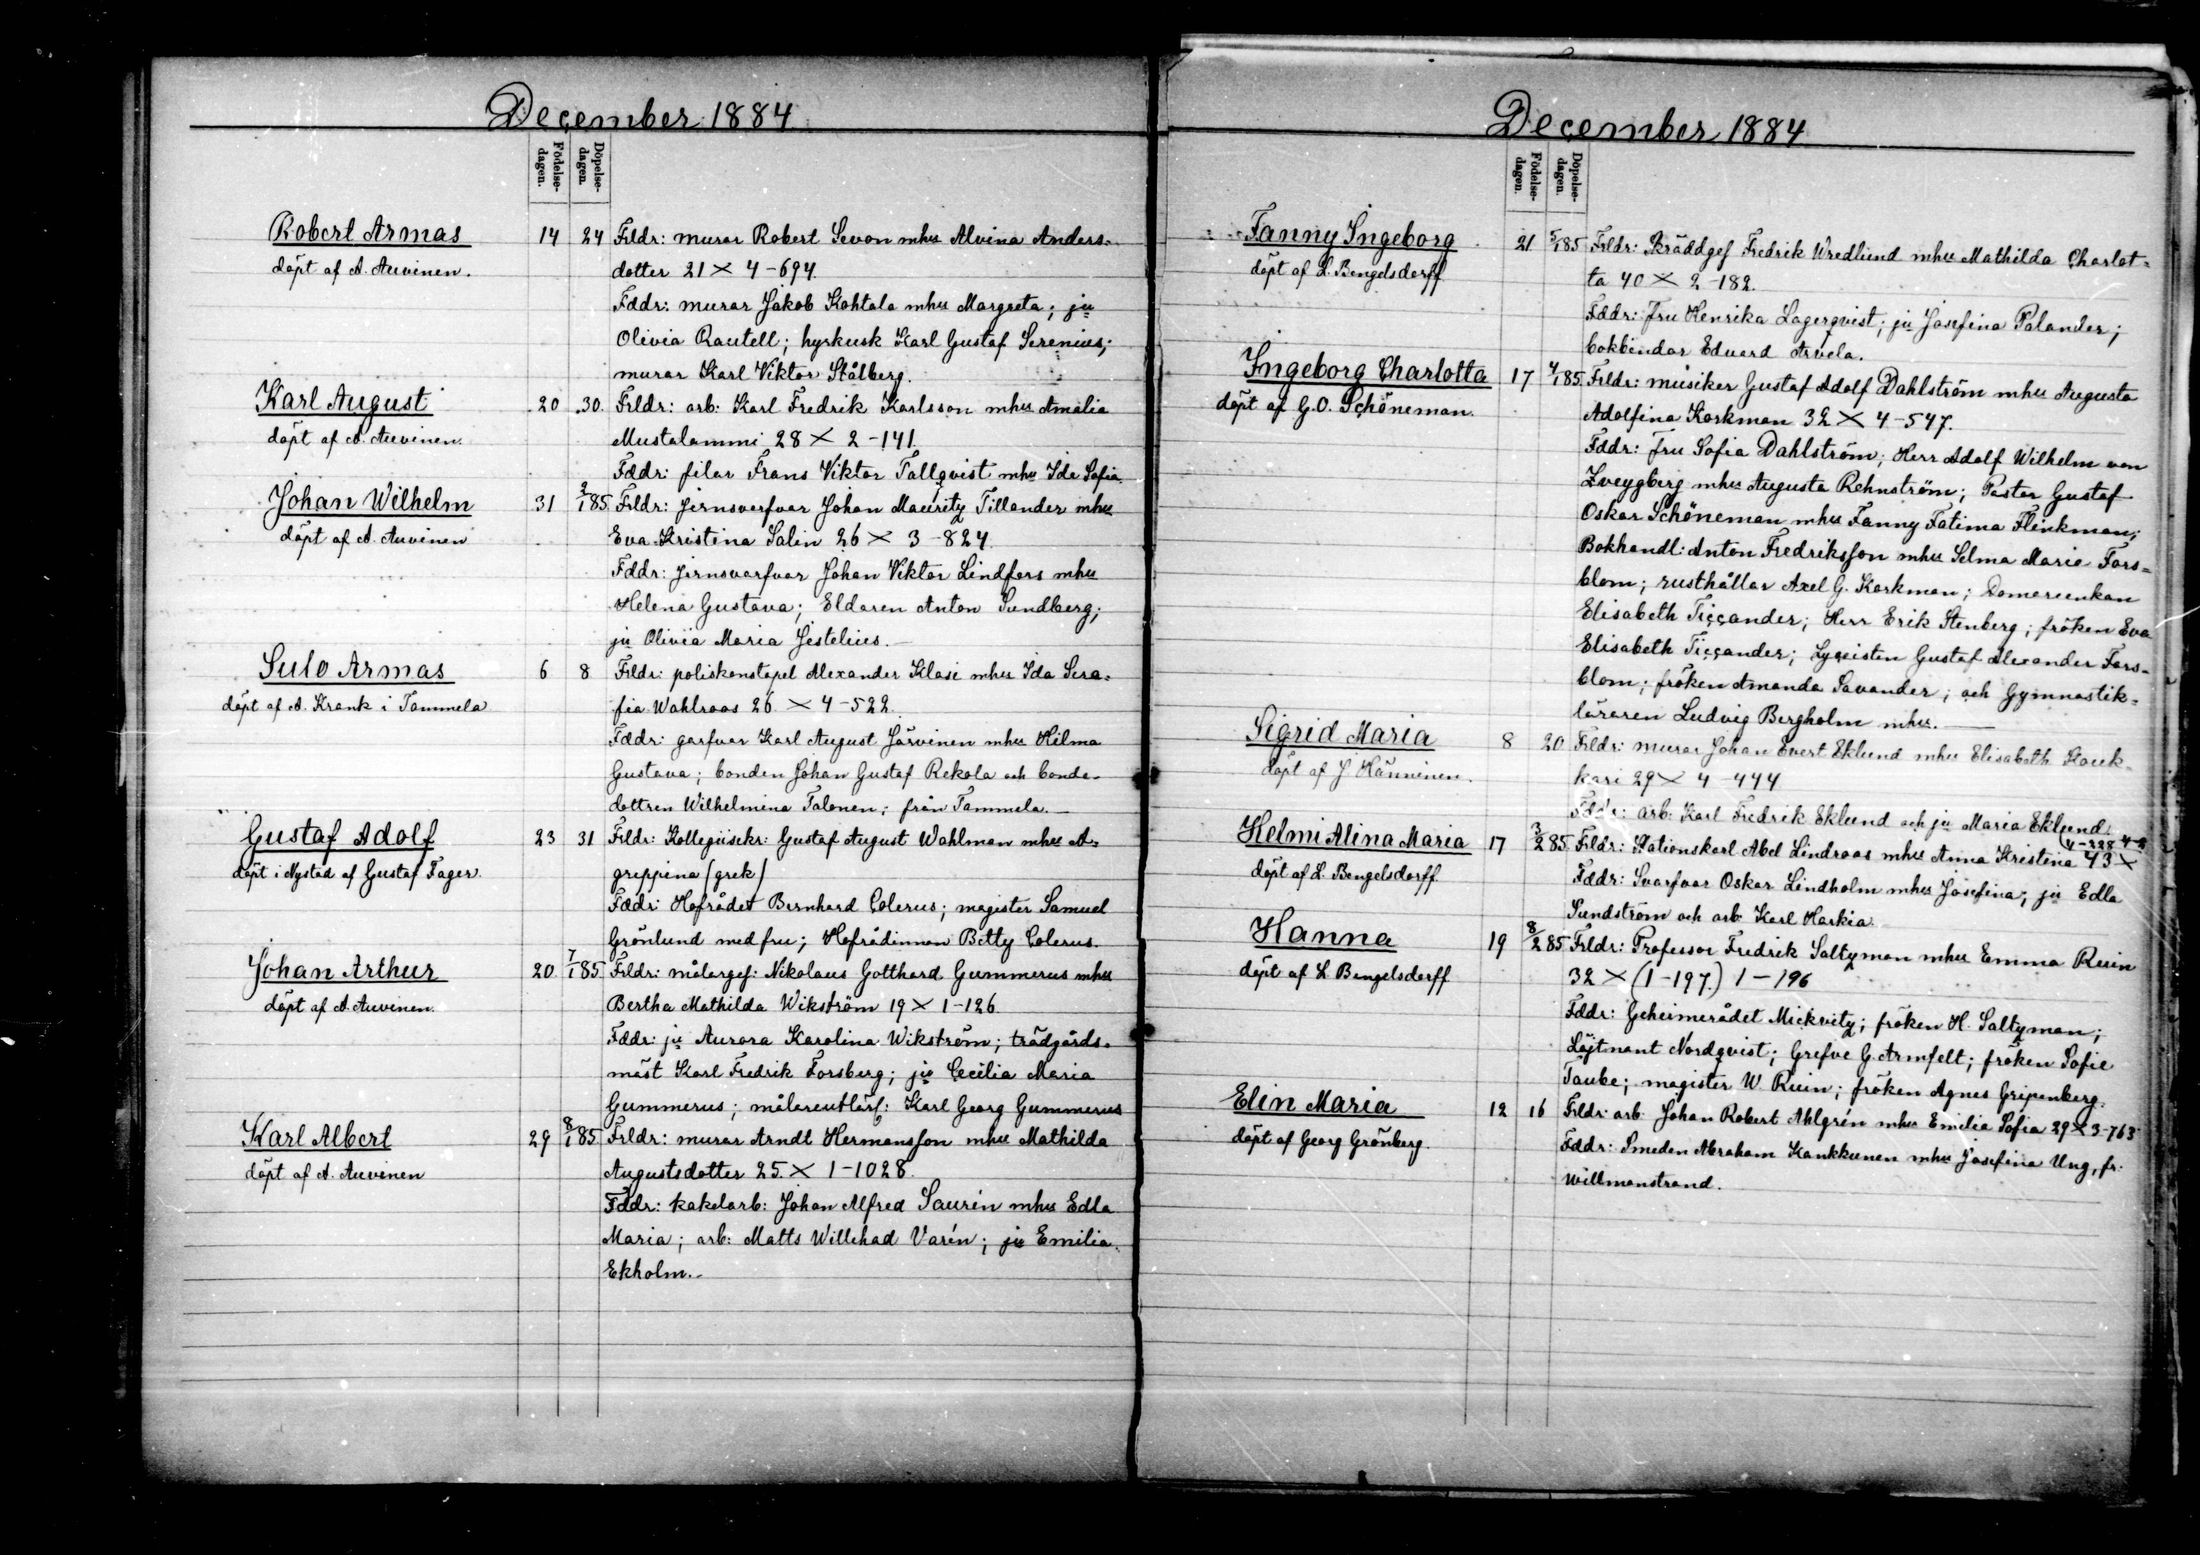 December 1884
Födelse-dagen. Döpelse-dagen.
Robert Armas 14 24 Frldr: murar Robert Sevon mhu Alvina Anders-
döpt af A. Auvinen. dotter 21 × 4-694.
Fddr: murar Jakob Kohtala mhu Margreta; ju
Olivia Rautell; hyrkusk Karl Gustaf Serenius;
murar Karl Viktor Stålberg.
Karl August 20 30. Frldr: arb: Karl Fredrik Karlsson mhu Amalia
döpt af A. Auvinen. Mustalammi 28 × 2-141.
Fddr: filar Frans Viktor Tallqvist mhu Ida Sofia.
Johan Wilhelm 31 2/1 85 Frldr: jernsvarfvar Johan Mauritz Tillander mhu
döpt af A. Auvinen Eva Kristina Salin 26 × 3-824.
Fddr: jernsvarfvar Johan Viktor Lindfors mhu
Helena Gustava; Eldaren Anton Sundberg;
ju Olivia Maria Jestelius.
Sulo Armas 6 8 Frldr: poliskonstapel Alexander Klasi mhu Ida Sera-
döpt af A. Krank i Tammela fia Wahlroos 26 × 4-522.
Fddr: garfvar Karl August Järvinen mhu Hilma
Gustava; bonden Johan Gustaf Rekola och bonde-
dottren Wilhelmina Talonen; från Tammela.
Gustaf Adolf 23 31 Frldr: Kollegiisekr: Gustaf August Wahlman mhu A-
döpt i Nystad af Gustaf Fager. greppina (grek)
Fddr: Hofrådet Bernhard Colerus; magister Samuel
Grönlund med fru; Hofrådinnan Betty Colerus.
Johan Arthur 20. 7/1 85 Frldr: målargef: Nikolaus Gotthard Gummerus mhu
döpt af A. Auvinen. Bertha Mathilda Wikström 19 × 1-126.
Fddr: ju Aurora Karolina Wikström; trädgårds-
mäst Karl Fredrik Forsberg; ju Cecilia Maria
Gummerus; målareutlärl: Karl Georg Gummerus
Karl Albert 29 8/1 85 Frldr: murar Arndt Hermansson mhu Mathilda
döpt af A. Auvinen Augustsdotter 25. × 1-1028.
Fddr: kakelarb: Johan Alfred Saurén mhu Edla
Maria; arb: Matts Willehad Varén; ju Emilia
Ekholm.
December 1884
Födelse-dagen. Döpelse-dagen.
Fanny Ingeborg 21 5/1 85 Frldr: Skräddgef Fredrik Wredlund mhu Mathilda Charlot-
döpt af L. Bengelsdorff ta 40 × 2-182.
Fddr: Fru Henrika Lagerqvist; ju Josefina Palander;
bokbindar Edvard Arvela.
Ingeborg Charlotta 17 4/1 85 Frldr: musiker Gustaf Adolf Dahlström mhu Augusta
döpt af G.O. Schöneman. Adolfina Korkman 32 × 4-547.
Fddr: fru Sofia Dahlström; Herr Adolf Wilhelm von
Zveygberg mhu Augusta Rehnström; Pastor Gustaf
Oskar Schöneman mhu Fanny Fatima Flinkman;
Bokhandl: Anton Fredriksson mhu Selma Maria Fors-
blom; rusthållar Axel G. Korkman; Domareenkan
Elisabeth Ticcander; Herr Erik Stenberg; fröken Eva
Elisabeth Ticcander; Lyceisten Gustaf Alexander Fors-
blom; fröken Amanda Savander; och Gymnastik-
läraren Ludvig Bergholm mhu.
Sigrid Maria 8 20 Frldr: murar Johan Evert Eklund mhu Elisabeth Kouk-
döpt af J Hänninen. kari 29 × 4-444
Fddr: arb: Karl Fredrik Eklund och ju Maria Eklund.
Helmi Alina Maria 17 3/2 85 Frldr: Stationskarl Abel Lindroos mhu Anna Kristina 43 ×
döpt af L. Bengelsdorff Fddr: Svarfvar Oskar Lindholm mhu Josefina; ju Edla
Sundström och arb: Karl Harkia.
Hanna 19 8/2 85 Frldr: Professor Fredrik Saltzman mhu Emma Ruin
döpt af L Bengelsdorff 32 × (1-197.) 1-196
Fddr: Geheimerådet Mickvitz; fröken H. Saltzman;
Löjtnant Nordqvist; Grefve G. Armfelt; fröken Sofie
Taube; magister W. Ruin; fröken Agnes Gripenberg.
Elin Maria 12 16 Frldr: arb: Johan Robert Ahlgrén mhu Emilia Sofia 29 × 3-763
döpt af Georg Grönberg. Fddr: Smeden Abraham Kankkunen mhu Josefina Ung, fr.
Willmanstrand.